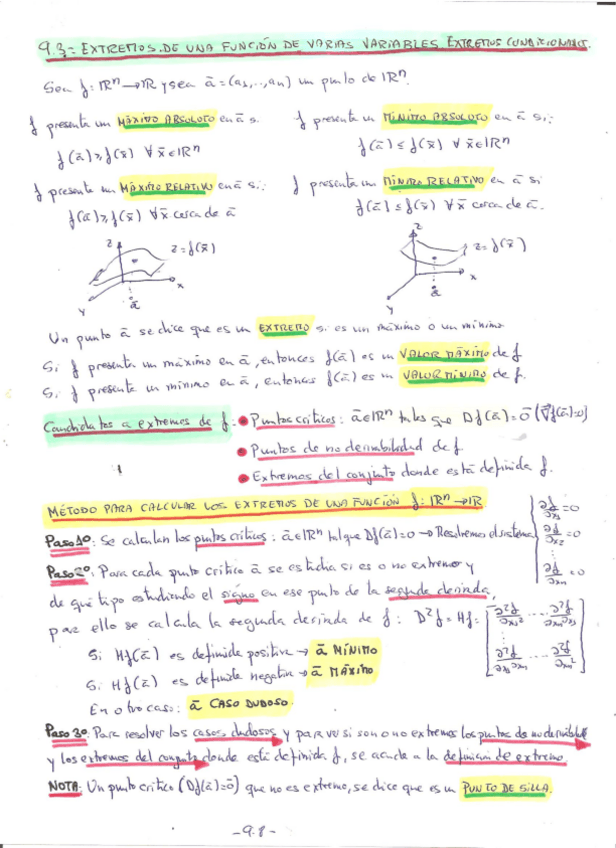 9.3.- EXTREMOS DE UNA FUNCIÓN DE VARIAS VARIABLES. EXTREMOS CONDICIONADOS.
Sea f: ℝⁿ → ℝ y sea ā = (a₁,..,aₙ) un punto de ℝⁿ.
f presenta un MÁXIMO ABSOLUTO en ā si:
f(ā) ≥ f(x̄) ∀ x̄ ∈ ℝⁿ
f presenta un MÍNIMO ABSOLUTO en ā si:
f(ā) ≤ f(x̄) ∀ x̄ ∈ ℝⁿ
f presenta un MÁXIMO RELATIVO en ā si:
f(ā) ≥ f(x̄) ∀ x̄ cerca de ā
f presenta un MÍNIMO RELATIVO en ā si
f(ā) ≤ f(x̄) ∀ x̄ cerca de ā.
z
z = f(x̄)
x
y
ā
z
z = f(x̄)
x
y
ā
Un punto ā se dice que es un EXTREMO si es un máximo o un mínimo
Si f presenta un máximo en ā, entonces f(ā) es un VALOR MÁXIMO de f
Si f presenta un mínimo en ā, entonces f(ā) es un VALOR MÍNIMO de f.
Candidatos a extremos de f: • Puntos críticos: ā ∈ ℝⁿ tales que Df(ā) = 0̄ (∇̄f(ā)=0)
• Puntos de no derivabilidad de f
• Extremos del conjunto donde está definida f.
MÉTODO PARA CALCULAR LOS EXTREMOS DE UNA FUNCIÓN f: ℝⁿ → ℝ
Paso 1º: Se calculan los puntos críticos: ā ∈ ℝⁿ tal que Df(ā) = 0 → Resolvemos el sistema
∂f/∂x₁ = 0
∂f/∂x₂ = 0
∂f/∂xₙ = 0
Paso 2º: Para cada punto crítico ā se estudia si es o no extremo y
de qué tipo estudiando el signo en ese punto de la segunda derivada,
para ello se calcula la segunda derivada de f: D²f = Hf =
∂²f/∂x₁² ... ∂²f/∂xₙ∂x₁
∂²f/∂x₁∂xₙ ... ∂²f/∂xₙ²
Si Hf(ā) es definida positiva → ā MÍNIMO
Si Hf(ā) es definida negativa → ā MÁXIMO
En otro caso: ā CASO DUDOSO.
Paso 3º: Para resolver los casos dudosos y para ver si son o no extremos los puntos de no derivabilidad
y los extremos del conjunto donde está definida f, se acude a la definición de extremo.
NOTA: Un punto crítico (Df(ā)=0̄) que no es extremo, se dice que es un PUNTO DE SILLA.
-9.8-